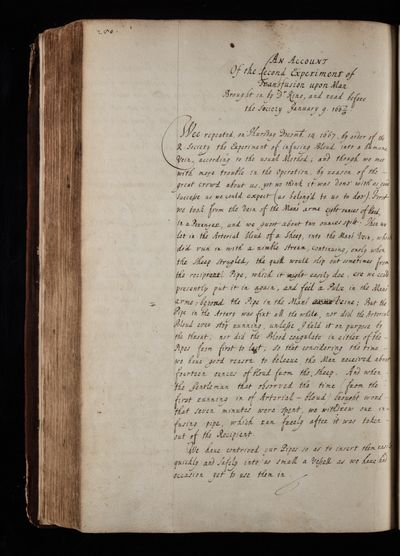 An Account
Of the Second Experiment of
Transfusion upon Man
Brought in by Dr King, and read before
the Society January 9. 166
Wee repeated, on Thursday Decemb 12 1667, by order of the
R Society the Experiment of infusing Bloud into a humane
Vein, according to the usual Method; and though we met
with more trouble in the Operation, by reason of the
great crowd about us, yet we think it was done with as good
success as we could expect (as belong'd to us to doe). First
we took from the Vein of the Mans arme eight ounces of bloud,
in a Porenger, and we guest about two ounces spilt. Then we
let in the Arterial bloud of a Sheep, into the Mans Vein, which
did run in with a nimble stream, continuing, onely when
the Sheep strugled, the quill would slip out sometimes from
the reciprocal Pipe, which it might easily doe, ere we could
presently put it in again, and feel a Pulse in the Mans
arme, beyond the Pipe in the Mans Veine; But the
Pipe in the Artery was fixt all the while, nor did the Arterial
Bloud ever stop running, unlesse I held it on purpose by
the throat; nor did the Bloud coagulate in either of the
Pipes from first to last; So that considering the time
we have good reason to beleeve, the Man received about
fourteen ounces of bloud from the Sheep. And when
the Gentleman that observed the time (from the
first running in of Arterial-bloud) brought word
that seven minutes were spent, we withdrew our in-
fusing pipe, which ran freely after it was taken
out of the Recipient.
We have contrived our Pipes so as to insert them easily
quickly and safely into as small a Vessell as we have had
occasion yet to use them in.